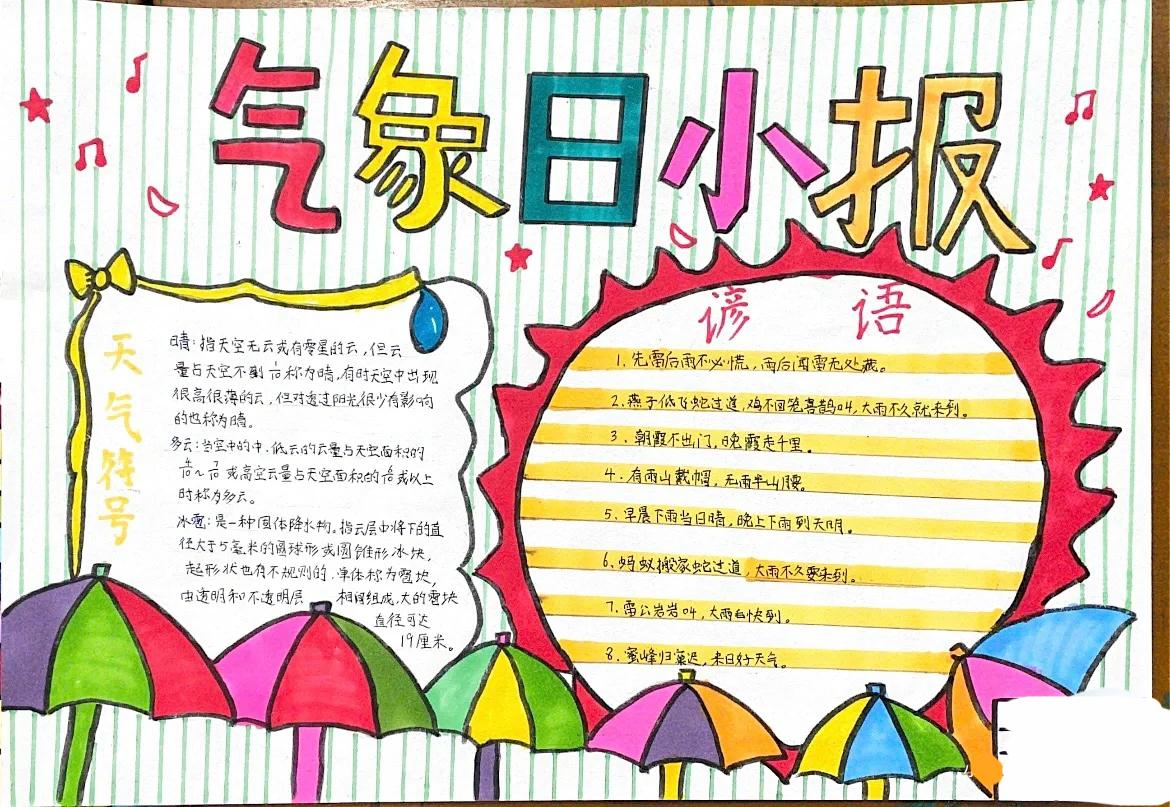 气象日小报
天气符号
晴：指天空无云或有零星的云，但云
量占天空不到1/10称为晴，有时天空中出现
很高很薄的云，但对透过阳光很少有影响
的也称为晴。
多云：当空中的中、低云的云量与天空面积的
4/10～7/10或高空云量与天空面积的6/10或以上
时称为多云。
冰雹：是一种固体降水物。指云层中将下的直
径大于5毫米的圆球形或圆锥形冰块，
起形状也有不规则的，单体称为雹块，
由透明和不透明层 相间组成，大的雹块
直径可达
19厘米。
谚语
1、先雷后雨不必慌，雨后闻雷无处藏。
2、燕子低飞蛇过道，鸡不回笼喜鹊叫，大雨不久就来到。
3、朝霞不出门，晚霞走千里。
4、有雨山戴帽，无雨半山腰。
5、早晨下雨当日晴，晚上下雨到天明。
6、蚂蚁搬家蛇过道，大雨不久要来到。
7、雷公岩岩叫，大雨自快到。
8、蜜蜂归巢迟，来日好天气。